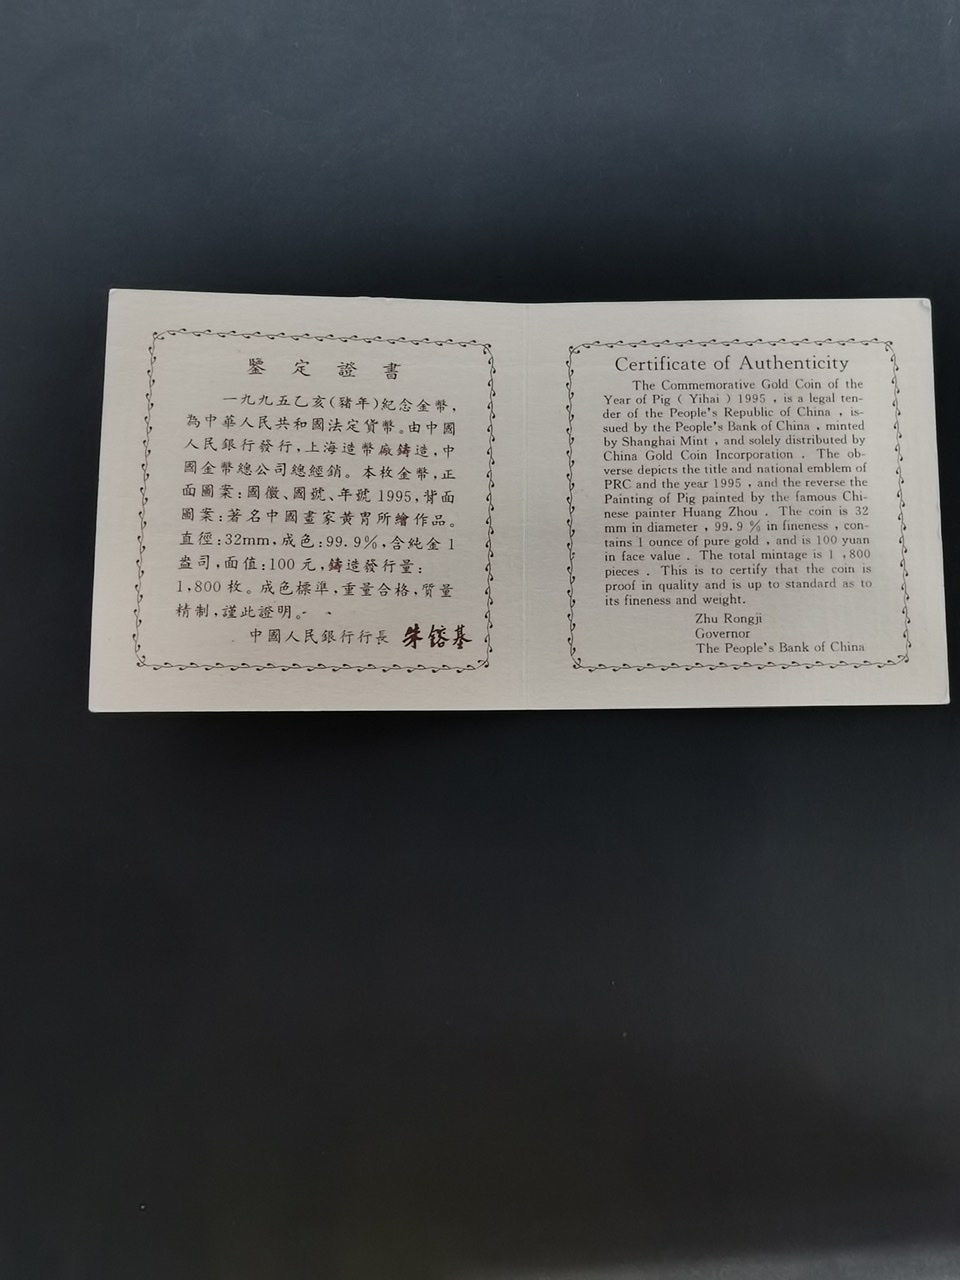 鑒定證書
一九九五乙亥(豬年)紀念金幣,
為中華人民共和國法定貨幣。由中國
人民銀行發行,上海造幣廠鑄造,中
國金幣總公司總經銷。本枚金幣,正
面圖案:國徽、國號、年號1995,背面
圖案:著名中國畫家黃冑所繪作品。
直徑:32mm,成色:99.9%,含純金1
盎司,面值:100元,鑄造發行量:
1,800枚。成色標準,重量合格,質量
精制,謹此證明。
中國人民銀行行長 朱鎔基
Certificate of Authenticity
The Commemorative Gold Coin of the
Year of Pig ( Yihai ) 1995 , is a legal ten-
der of the People's Republic of China , is-
sued by the People's Bank of China , minted
by Shanghai Mint , and solely distributed by
China Gold Coin Incorporation . The ob-
verse depicts the title and national emblem of
PRC and the year 1995 , and the reverse the
Painting of Pig painted by the famous Chi-
nese painter Huang Zhou . The coin is 32
mm in diameter , 99.9 % in fineness , con-
tains 1 ounce of pure gold , and is 100 yuan
in face value . The total mintage is 1 ,800
pieces . This is to certify that the coin is
proof in quality and is up to standard as to
its fineness and weight.
Zhu Rongji
Governor
The People's Bank of China